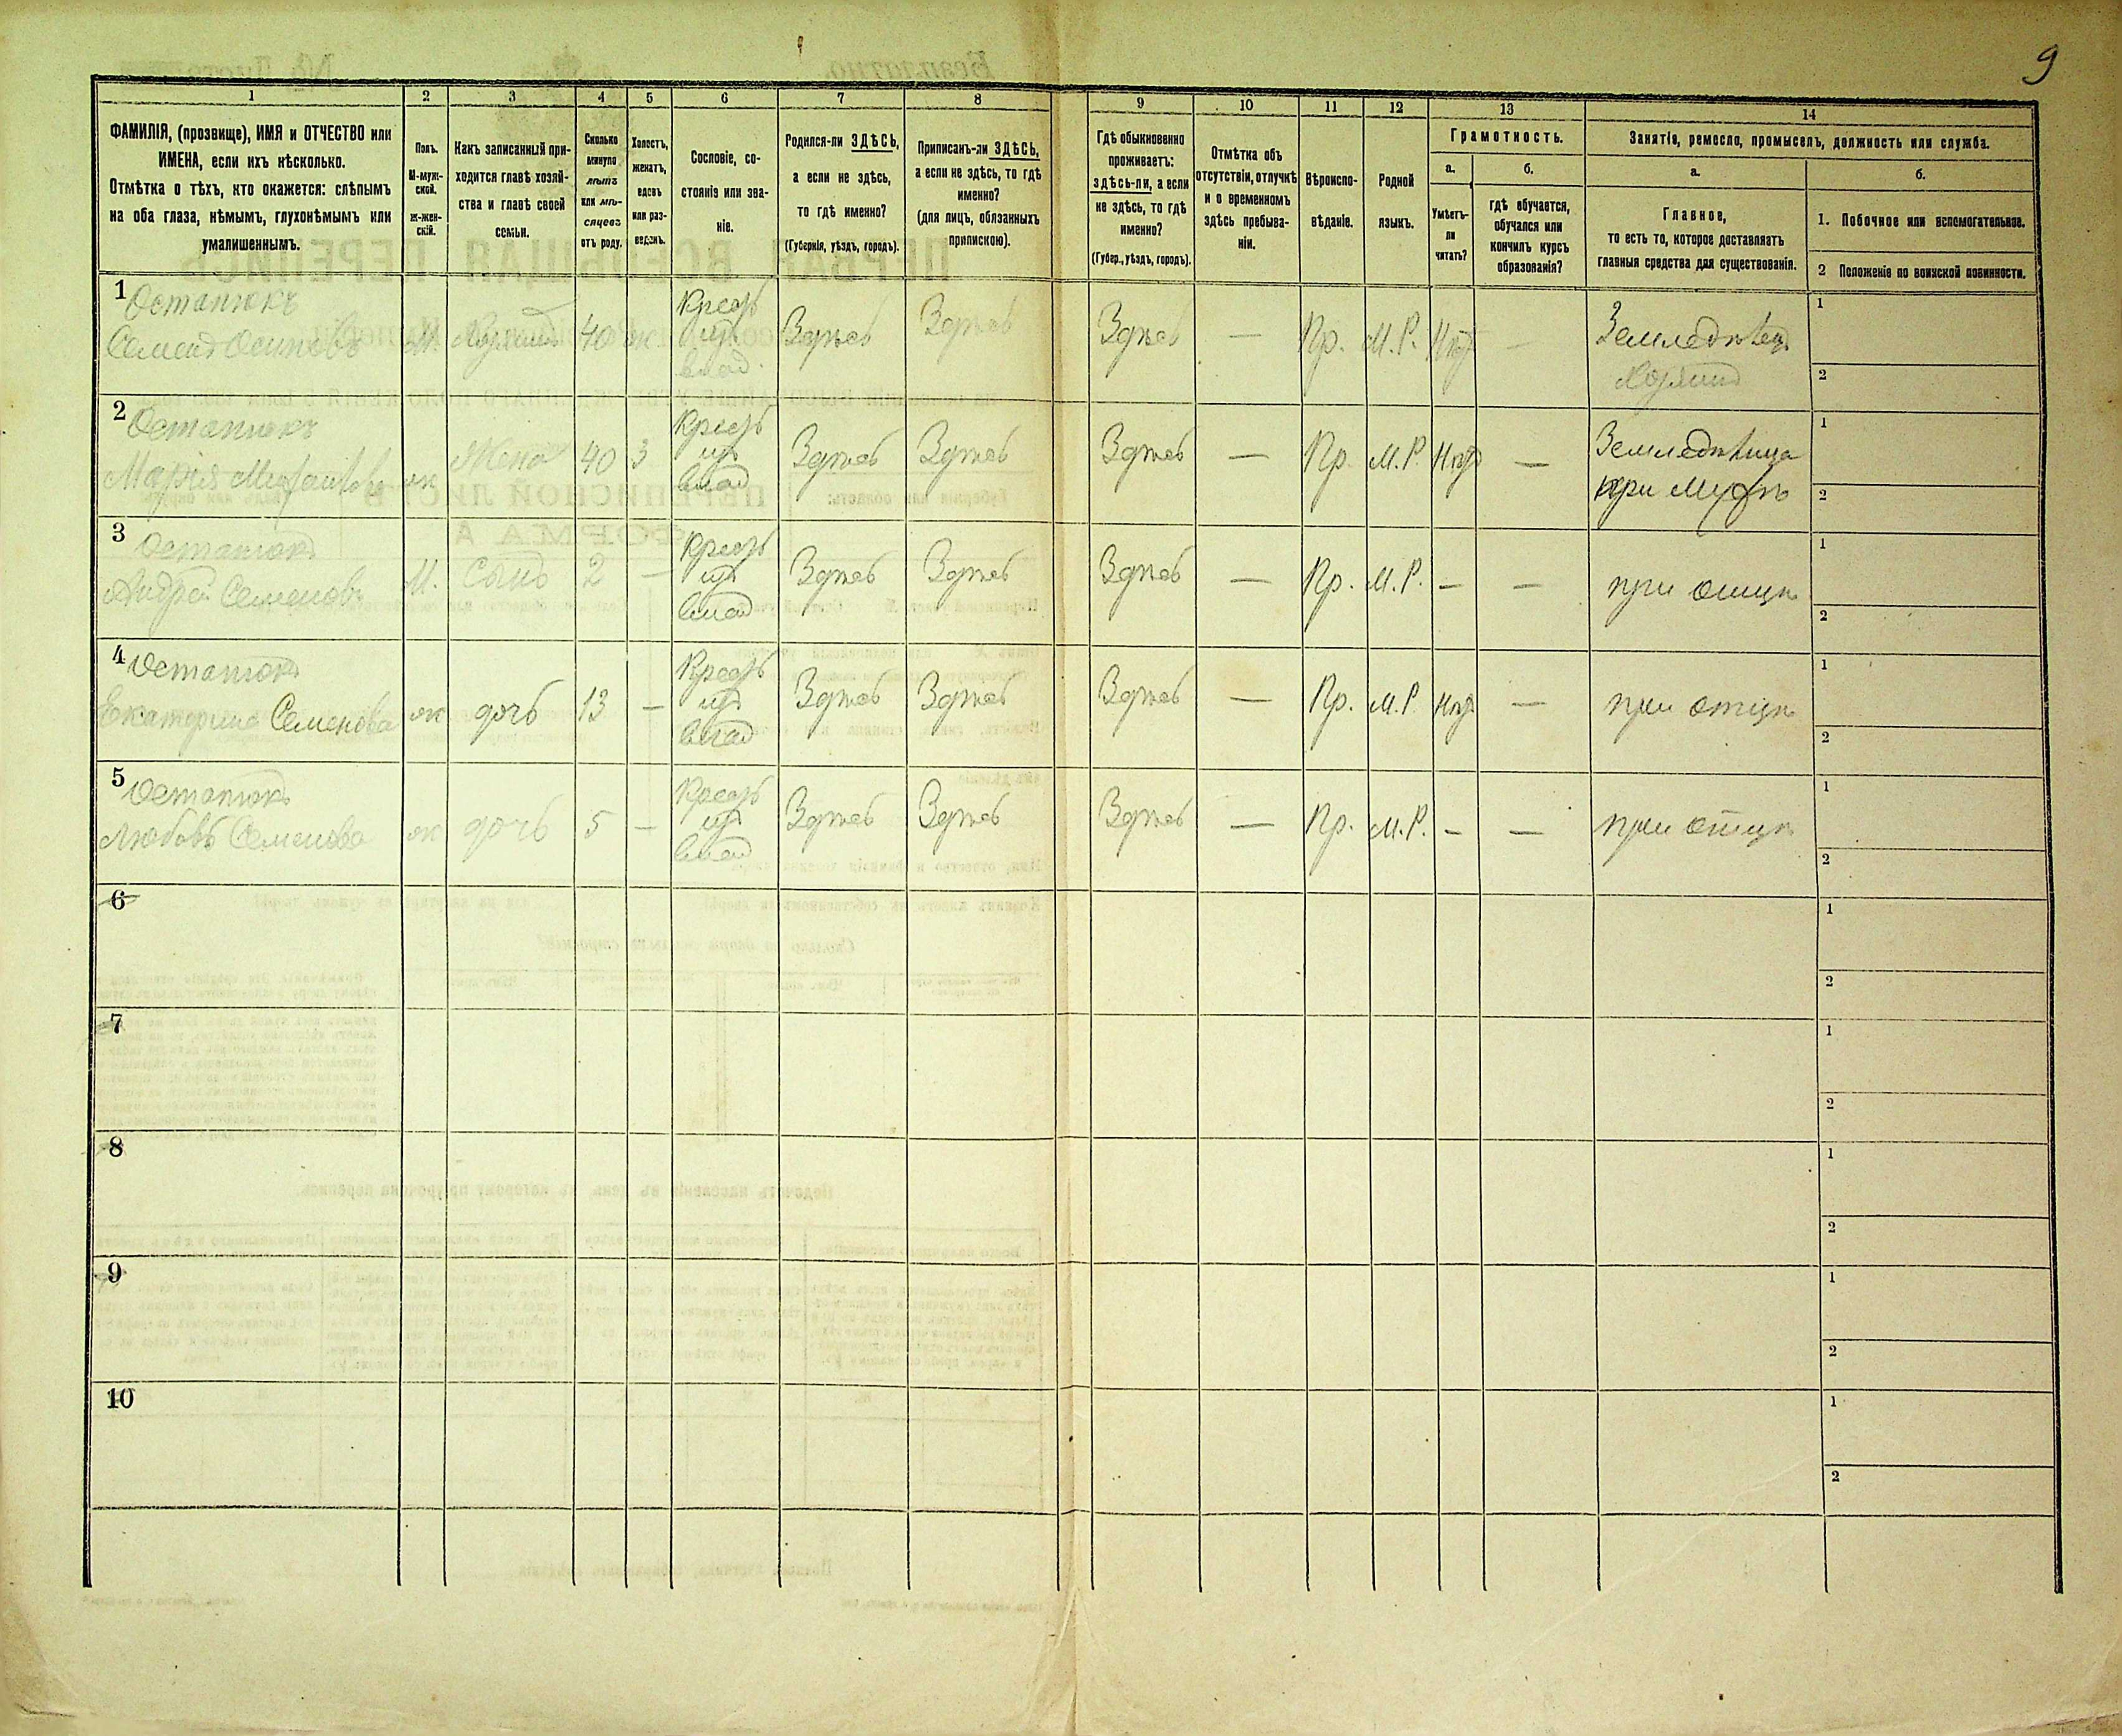 9
1 2 3 4 5 6 7 8 9 10 11 12 13 14
ФАМИЛІЯ, (прозвище), ИМЯ и ОТЧЕСТВО или
ИМЕНА, если ихъ нѣсколько.
Отмѣтка о тѣхъ, кто окажется: слѣпымъ
на оба глаза, нѣмымъ, глухонѣмымъ или
умалишеннымъ.
Полъ.
М-муж-
ской.
ж-жен-
скій.
Какъ записанный при-
ходится главѣ хозяй-
ства и главѣ своей
семьи.
Сколько
минуло
лѣтъ
или мѣ-
сяцевъ
отъ роду.
Холостъ,
женатъ,
вдовъ
или раз-
веденъ.
Сословіе, со-
стояніе или зва-
ніе.
Родился-ли ЗДѢСЬ,
а если не здѣсь,
то гдѣ именно?
(Губернія, уѣздъ, городъ).
Приписанъ-ли ЗДѢСЬ,
а если не здѣсь, то гдѣ
именно?
(для лицъ, обязанныхъ
припискою).
Гдѣ обыкновенно
проживаетъ:
здѣсь-ли, а если
не здѣсь, то гдѣ
именно?
(Губер., уѣздъ, городъ).
Отмѣтка объ
отсутствіи, отлучкѣ
и о временномъ
здѣсь пребыва-
ніи.
Вѣроиспо-
вѣданіе.
Родной
языкъ.
Грамотность.
а.
Умѣетъ-
ли
читать?
б.
гдѣ обучается,
обучался или
кончилъ курсъ
образованія?
Занятіе, ремесло, промыселъ, должность или служба.
а.
Главное,
то есть то, которое доставляетъ
главныя средства для существованія.
б.
1. Побочное или вспомогательное.
2 Положеніе по воинской повинности.
1 Остапюкъ
Семенъ Осиповъ М. Хозяинъ 40 ж. Крест изъ влад. Здѣсь Здѣсь Здѣсь — Пр. М.Р. Нѣтъ — Земледѣлец Хозяинъ
1
2
2 Остапюкъ
Марія Михайлова ж Жена 40 З Крест из влад Здѣсь Здѣсь Здѣсь — Пр. М.Р. Нѣтъ — Земледѣлица при Мужѣ
1
2
3 Остапюкъ
Андрей Семеновъ М. Сынъ 2 — Крест из влад Здѣсь Здѣсь Здѣсь — Пр. М.Р. — — при отцѣ
1
2
4 Остапюкъ
Екатерина Семенова ж дочь 13 — Крест из влад Здѣсь Здѣсь Здѣсь — Пр. М.Р. Нѣтъ — при отцѣ
1
2
5 Остапюкъ
Любовь Семенова ж дочь 5 — Крест из влад Здѣсь Здѣсь Здѣсь — Пр. М.Р. — — при отцѣ
1
2
6
1
2
7
1
2
8
1
2
9
1
2
10
1
2